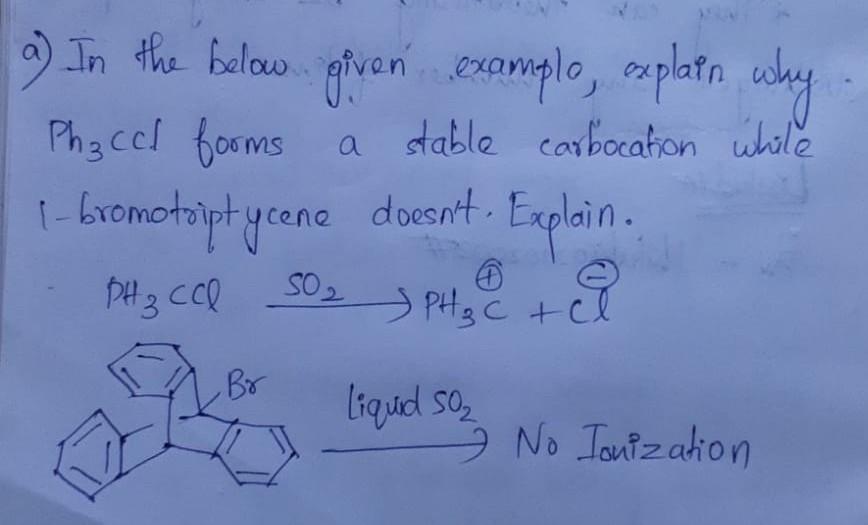 a) In the below given example, explain why
Ph3CCl forms a stable carbocation while
1-bromotriptycene doesn't. Explain.
PH3CCl SO2 PH3C⊕ + Cl⊖
Br
liquid SO2
No Ionization